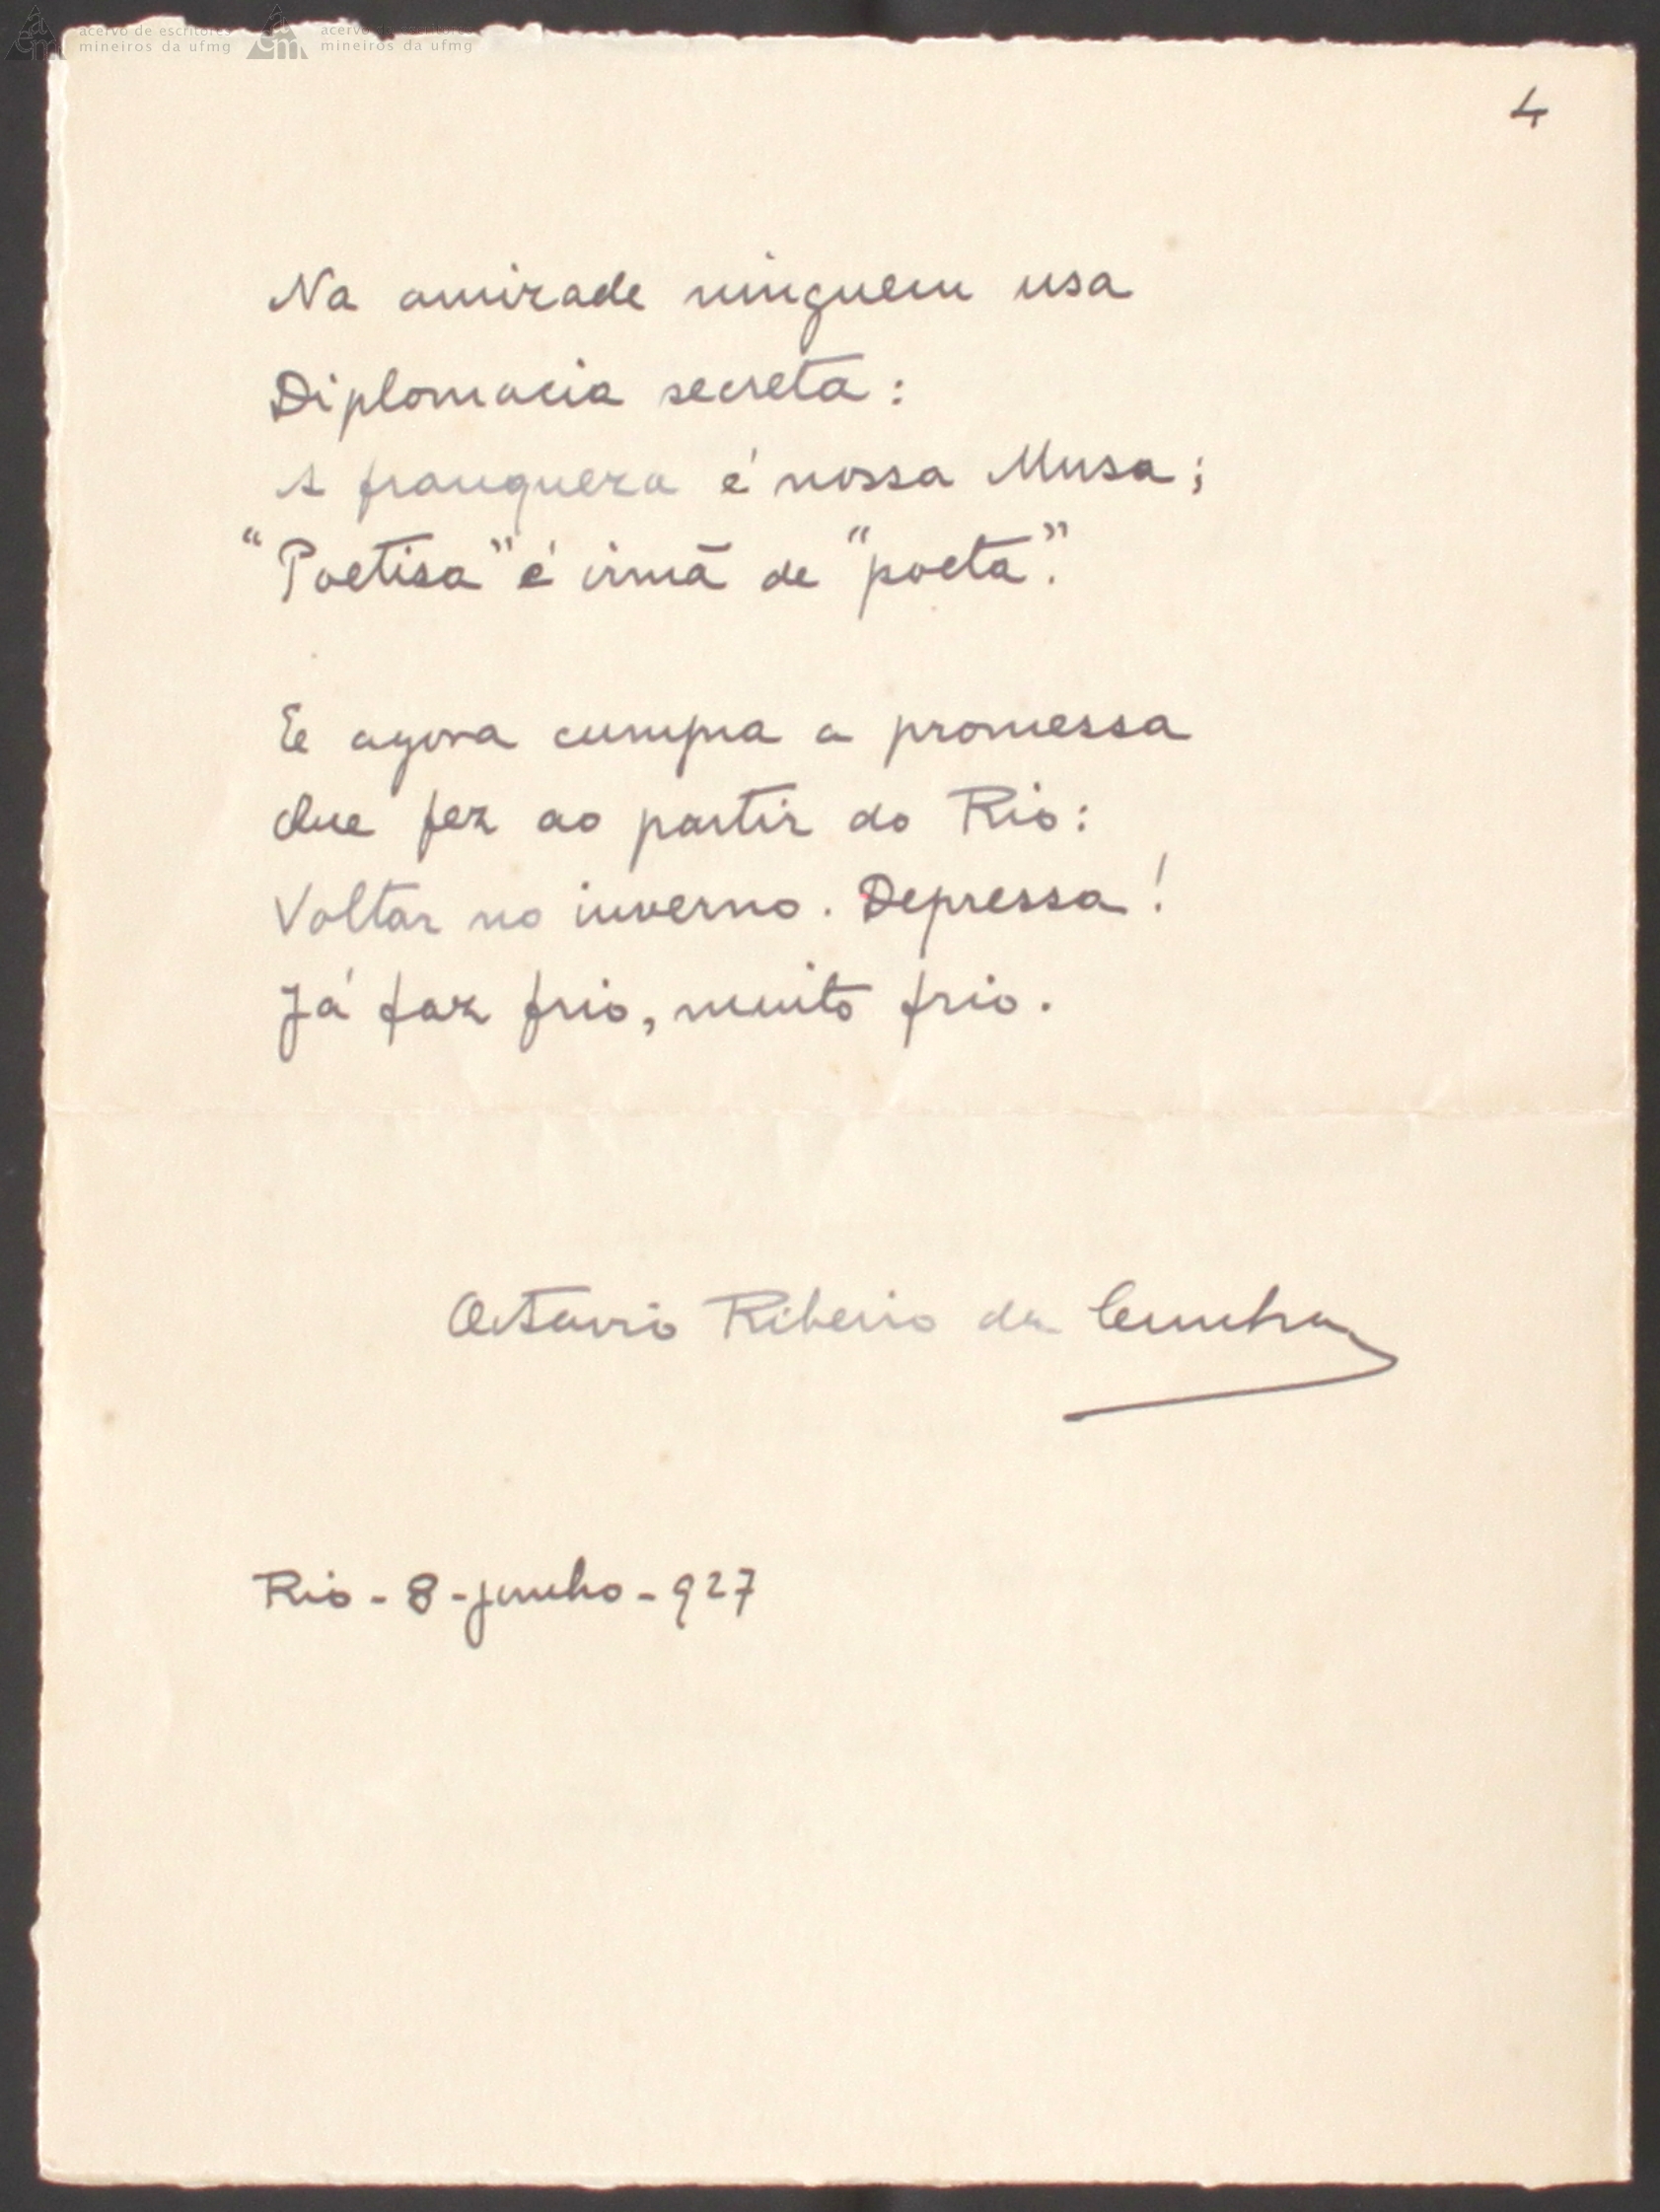 acervo de escritores
mineiros da ufmg
acervo de escritores
mineiros da ufmg
4
Na amizade ninguem usa
Diplomacia secreta:
A franqueza é nossa Musa;
"Poetisa" é irmã de "poeta".
E agora cumpra a promessa
Que fez ao partir do Rio:
Voltar no inverno. Depressa!
Já faz frio, muito frio.
Octavio Ribeiro da Cunha
Rio - 8 - junho - 927